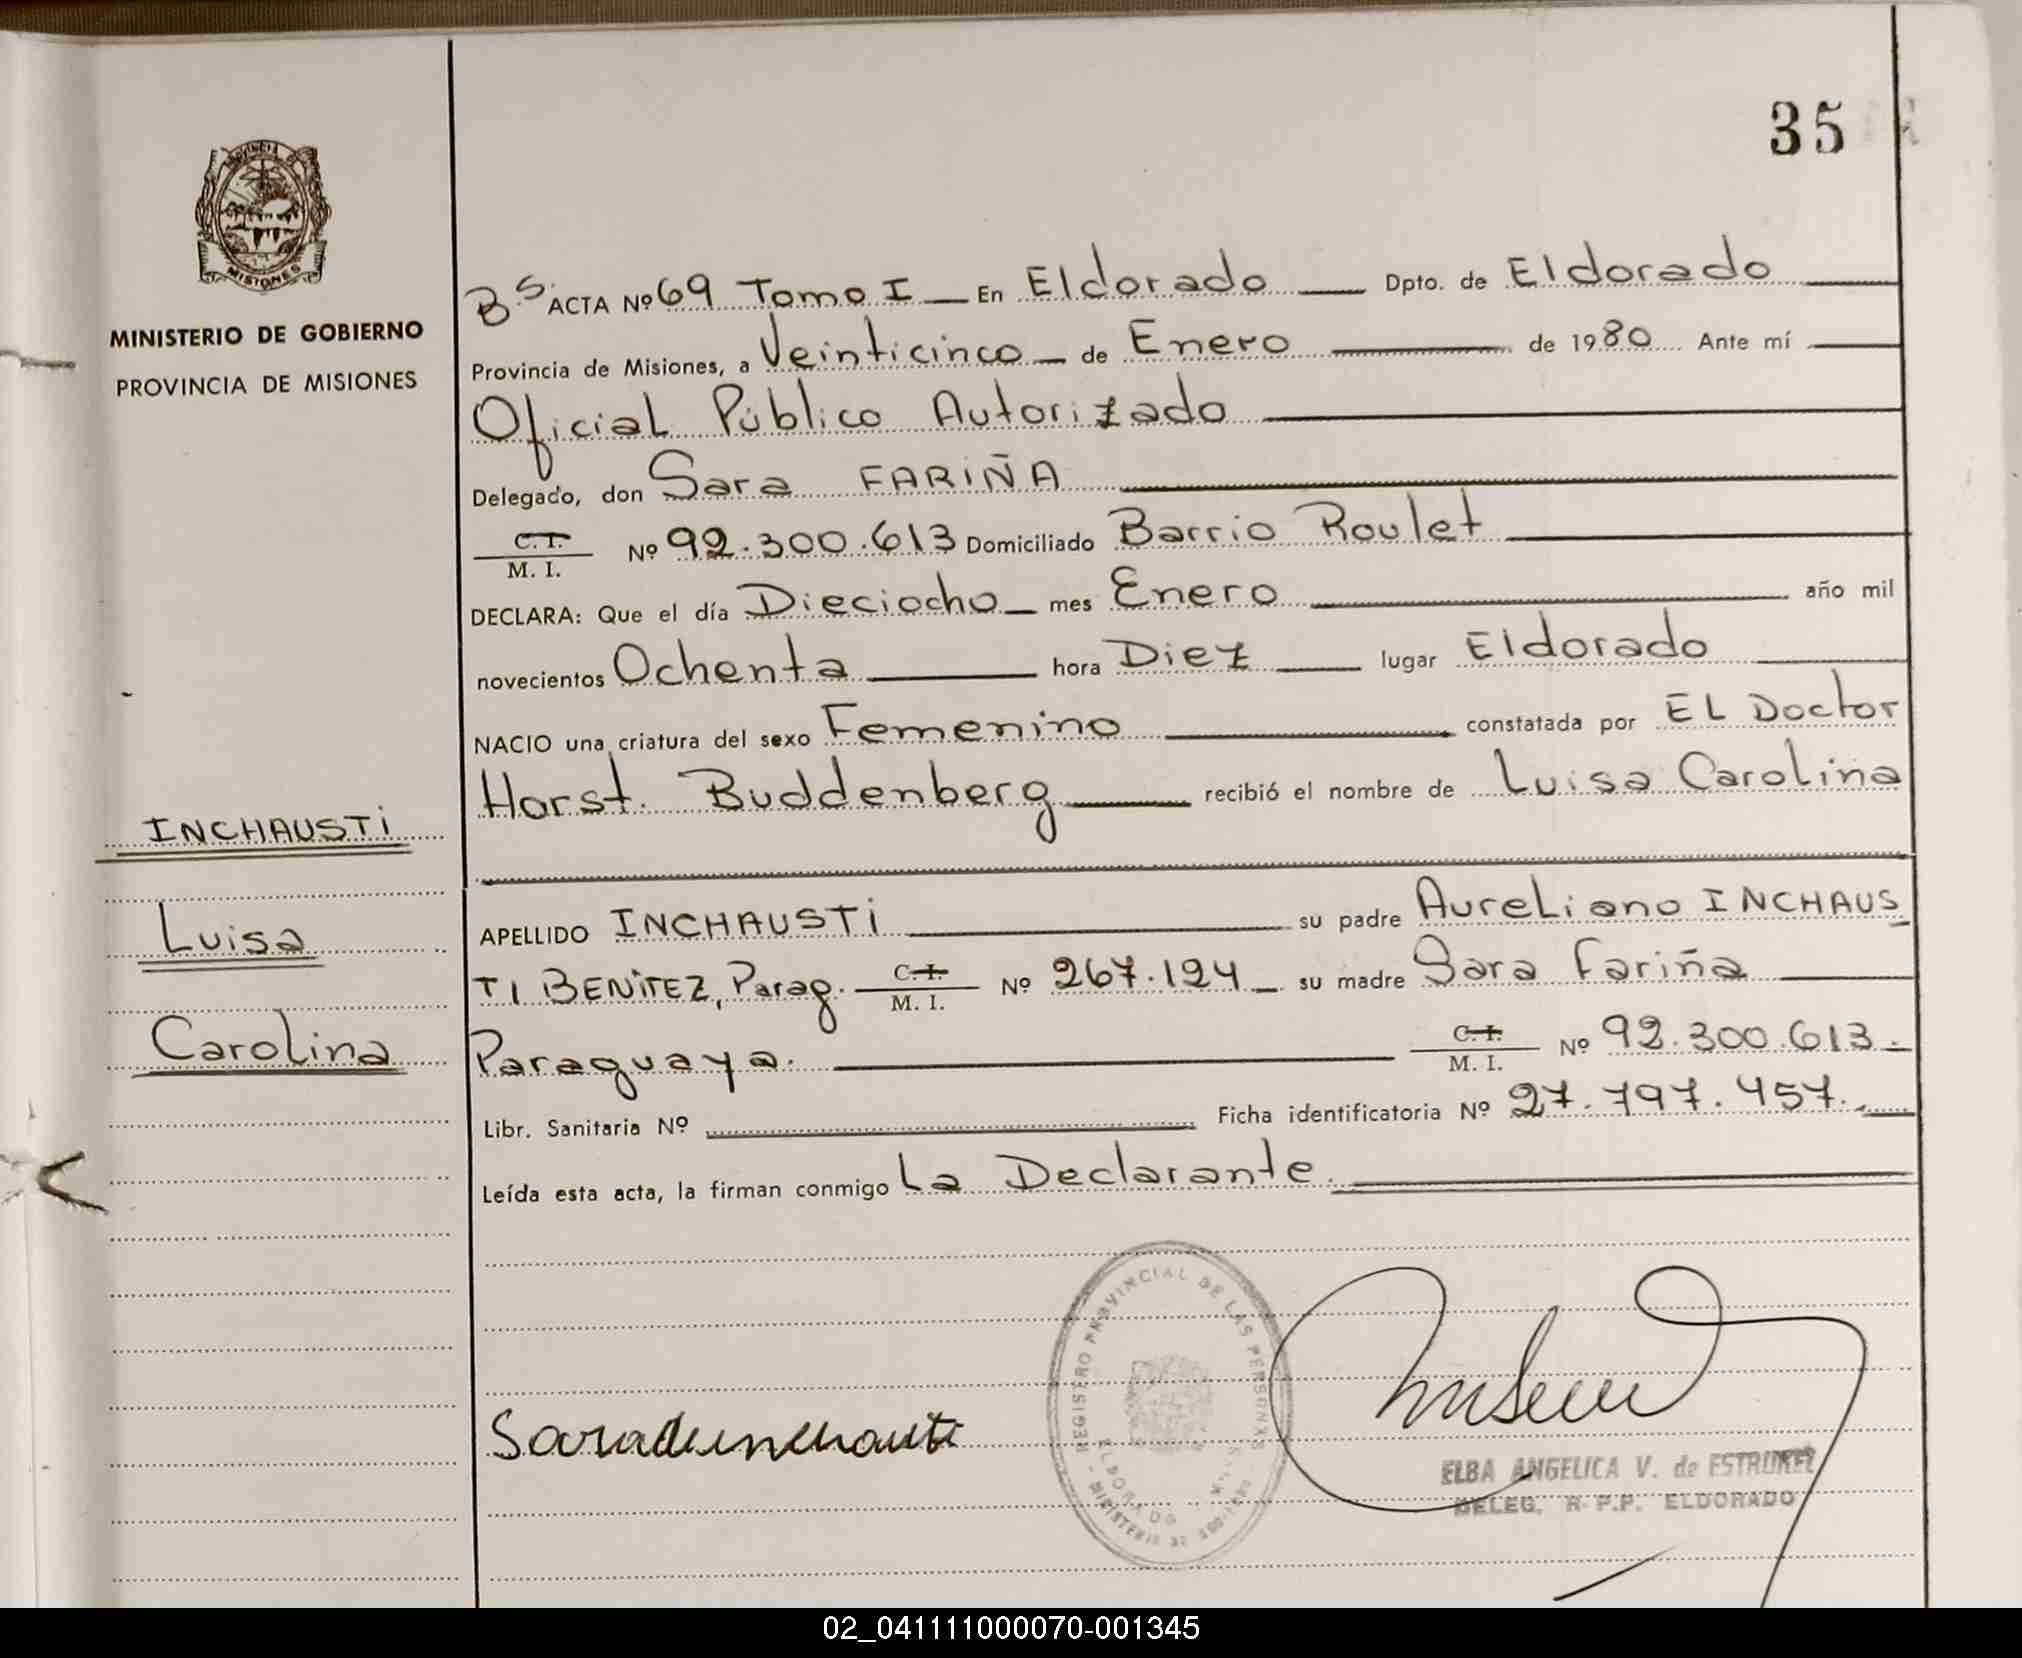 35
PROVINCIA
MISIONES
MINISTERIO DE GOBIERNO
PROVINCIA DE MISIONES
INCHAUSTI
Luisa
Carolina
Bs ACTA Nº 69 Tomo I En Eldorado Dpto. de Eldorado
Provincia de Misiones, a Veinticinco de Enero de 1980 Ante mí
Oficial Público Autorizado
Delegado, don Sara FARIÑA
C. I.
M. I. Nº 92.300.613 Domiciliado Barrio Roulet
DECLARA: Que el día Dieciocho mes Enero año mil
novecientos Ochenta hora Diez lugar Eldorado
NACIO una criatura del sexo Femenino constatada por EL Doctor
Horst. Buddenberg recibió el nombre de Luisa Carolina
APELLIDO INCHAUSTI su padre Aureliano INCHAUS
TI BENITEZ, Parag. C. I. M. I. Nº 267.124 su madre Sara Fariña
Paraguaya. C. I. M. I. Nº 92.300.613.
Libr. Sanitaria Nº Ficha identificatoria Nº 27.797.457.
Leída esta acta, la firman conmigo La Declarante.
REGISTRO PROVINCIAL DE LAS PERSONAS
ELDORADO
MINISTERIO DE GOBIERNO
Sara de Inchausti
ELBA ANGELICA V. de
DELEG. R. P. P. ELDORADO
02_041111000070-001345